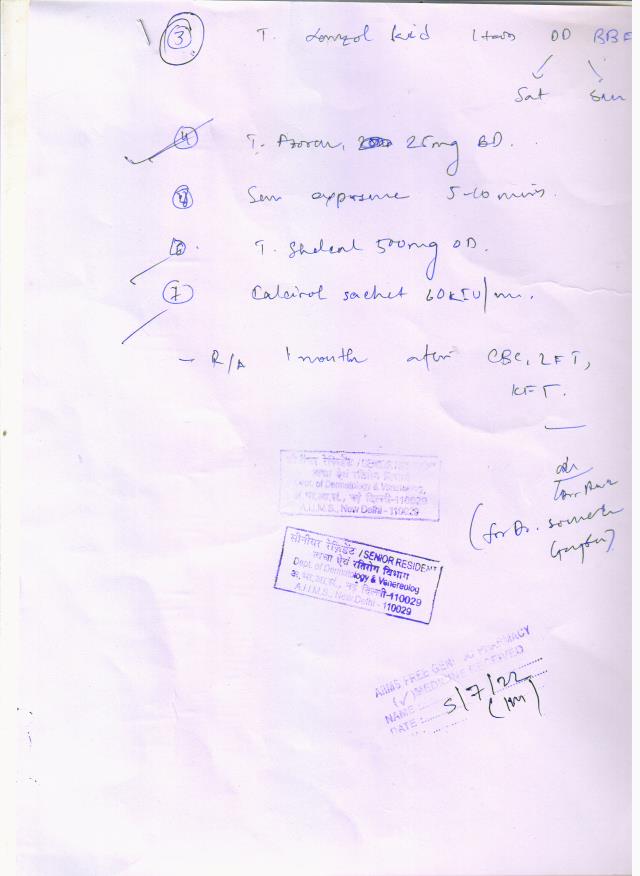 3 T. kid 1 tab OD BBF
Sat Sun
4 T. Azoran, 25mg BD.
5 Sun exposure 5-10 mins.
6 T. Shelcal 500mg OD.
7 Calcirol sachet 60K IU/
- R/A 1 month after CBC, LFT,
KFT.
सीनीयर रेज़िडेंट / SENIOR RESIDENT
त्वचा एवं रतिरोग विभाग
Dept. of Dermatology & Venereolog
अ.भा.आ.सं., नई दिल्ली-110029
A.I.I.M.S., New Delhi - 110029
(for Dr.
सीनीयर रेज़िडेंट / SENIOR RESIDENT
त्वचा एवं रतिरोग विभाग
Dept. of Dermatology & Venereolog
अ.भा.आ.सं., नई दिल्ली-110029
A.I.I.M.S., New Delhi - 110029
AIIMS FREE GENERIC PHARMACY
(✓) MEDICINE RECEIVED
NAME
DATE : 5/7/22
(1m)